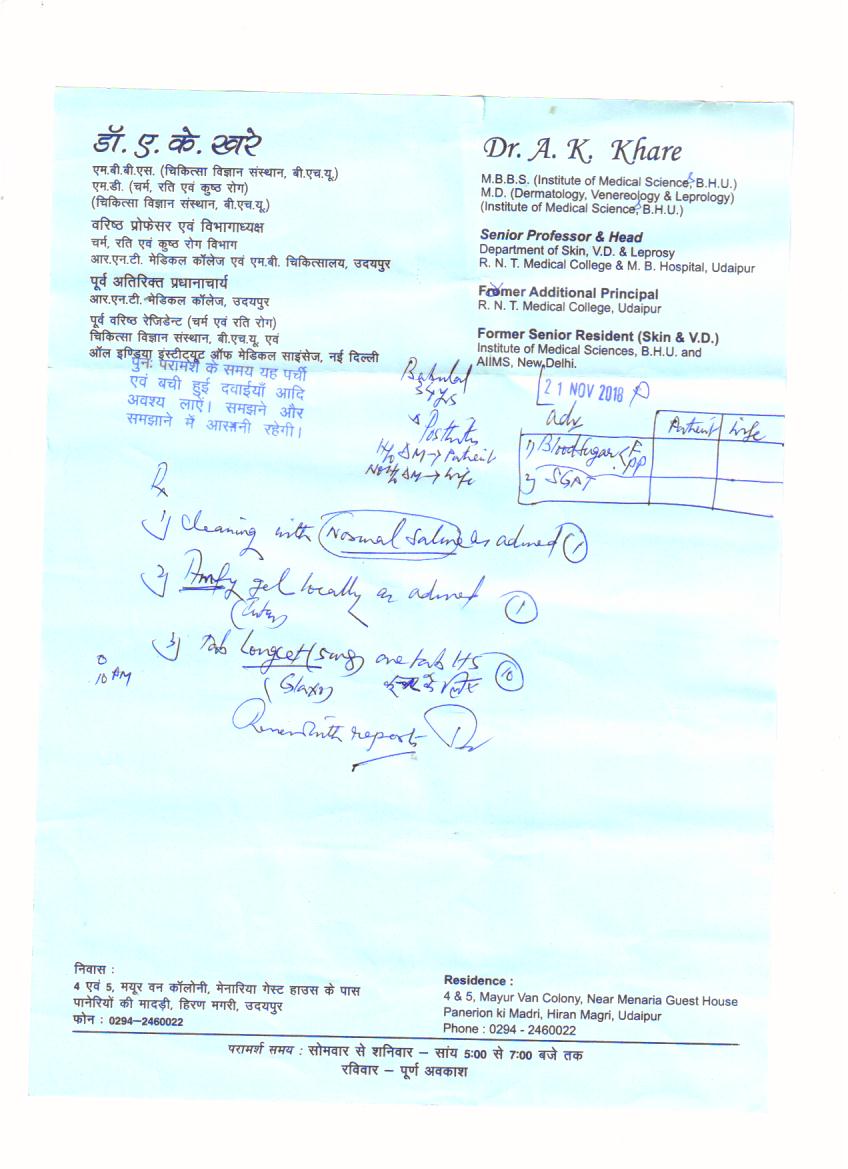 डॉ. ए. के. खरे
एम.बी.बी.एस. (चिकित्सा विज्ञान संस्थान, बी.एच.यू.)
एम.डी. (चर्म, रति एवं कुष्ठ रोग)
(चिकित्सा विज्ञान संस्थान, बी.एच.यू.)
वरिष्ठ प्रोफेसर एवं विभागाध्यक्ष
चर्म, रति एवं कुष्ठ रोग विभाग
आर.एन.टी. मेडिकल कॉलेज एवं एम.बी. चिकित्सालय, उदयपुर
पूर्व अतिरिक्त प्रधानाचार्य
आर.एन.टी. मेडिकल कॉलेज, उदयपुर
पूर्व वरिष्ठ रेजिडेन्ट (चर्म एवं रति रोग)
चिकित्सा विज्ञान संस्थान, बी.एच.यू. एवं
ऑल इण्डिया इंस्टीट्यूट ऑफ मेडिकल साइंसेज, नई दिल्ली
पुनः परामर्श के समय यह पर्ची
एवं बची हुई दवाईयाँ आदि
अवश्य लाएं। समझने और
समझाने में आसानी रहेगी।
Dr. A. K. Khare
M.B.B.S. (Institute of Medical Sciences, B.H.U.)
M.D. (Dermatology, Venereology & Leprology)
(Institute of Medical Sciences, B.H.U.)
Senior Professor & Head
Department of Skin, V.D. & Leprosy
R. N. T. Medical College & M. B. Hospital, Udaipur
Former Additional Principal
R. N. T. Medical College, Udaipur
Former Senior Resident (Skin & V.D.)
Institute of Medical Sciences, B.H.U. and
AIIMS, New Delhi.
21 NOV 2018
54 yrs
Posthitis
H/o DM → Patient
No H/o DM → Wife
adv
Patient Wife
1) Blood Sugar F PP
2) SGPT
Rx
1) Cleaning with Normal Saline as advised 1
2) gel locally as advised 1
3) Tab (5mg) one tab HS 10
(Glaxo)
10 AM
Review with reports
निवास :
4 एवं 5, मयूर वन कॉलोनी, मेनारिया गेस्ट हाउस के पास
पानेरियों की मादड़ी, हिरण मगरी, उदयपुर
फोन : 0294–2460022
Residence :
4 & 5, Mayur Van Colony, Near Menaria Guest House
Panerion ki Madri, Hiran Magri, Udaipur
Phone : 0294 - 2460022
परामर्श समय : सोमवार से शनिवार – सांय 5:00 से 7:00 बजे तक
रविवार – पूर्ण अवकाश